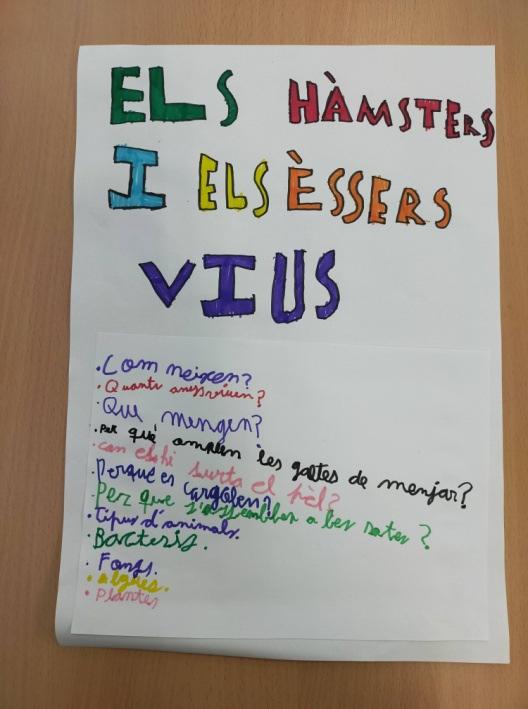 ELS HÀMSTERS
I ELS ÈSSERS
VIUS
·Com neixen?
·Quants anys viuen?
·Que mengen?
·Per què omplen les galtes de menjar?
·Com els hi surta el pèl?
·Perque es cargolen?
·Per que s'assemblen a les rates?
·Tipus d'animals.
·Bacteris.
·Fongs.
·algues.
·Plantes